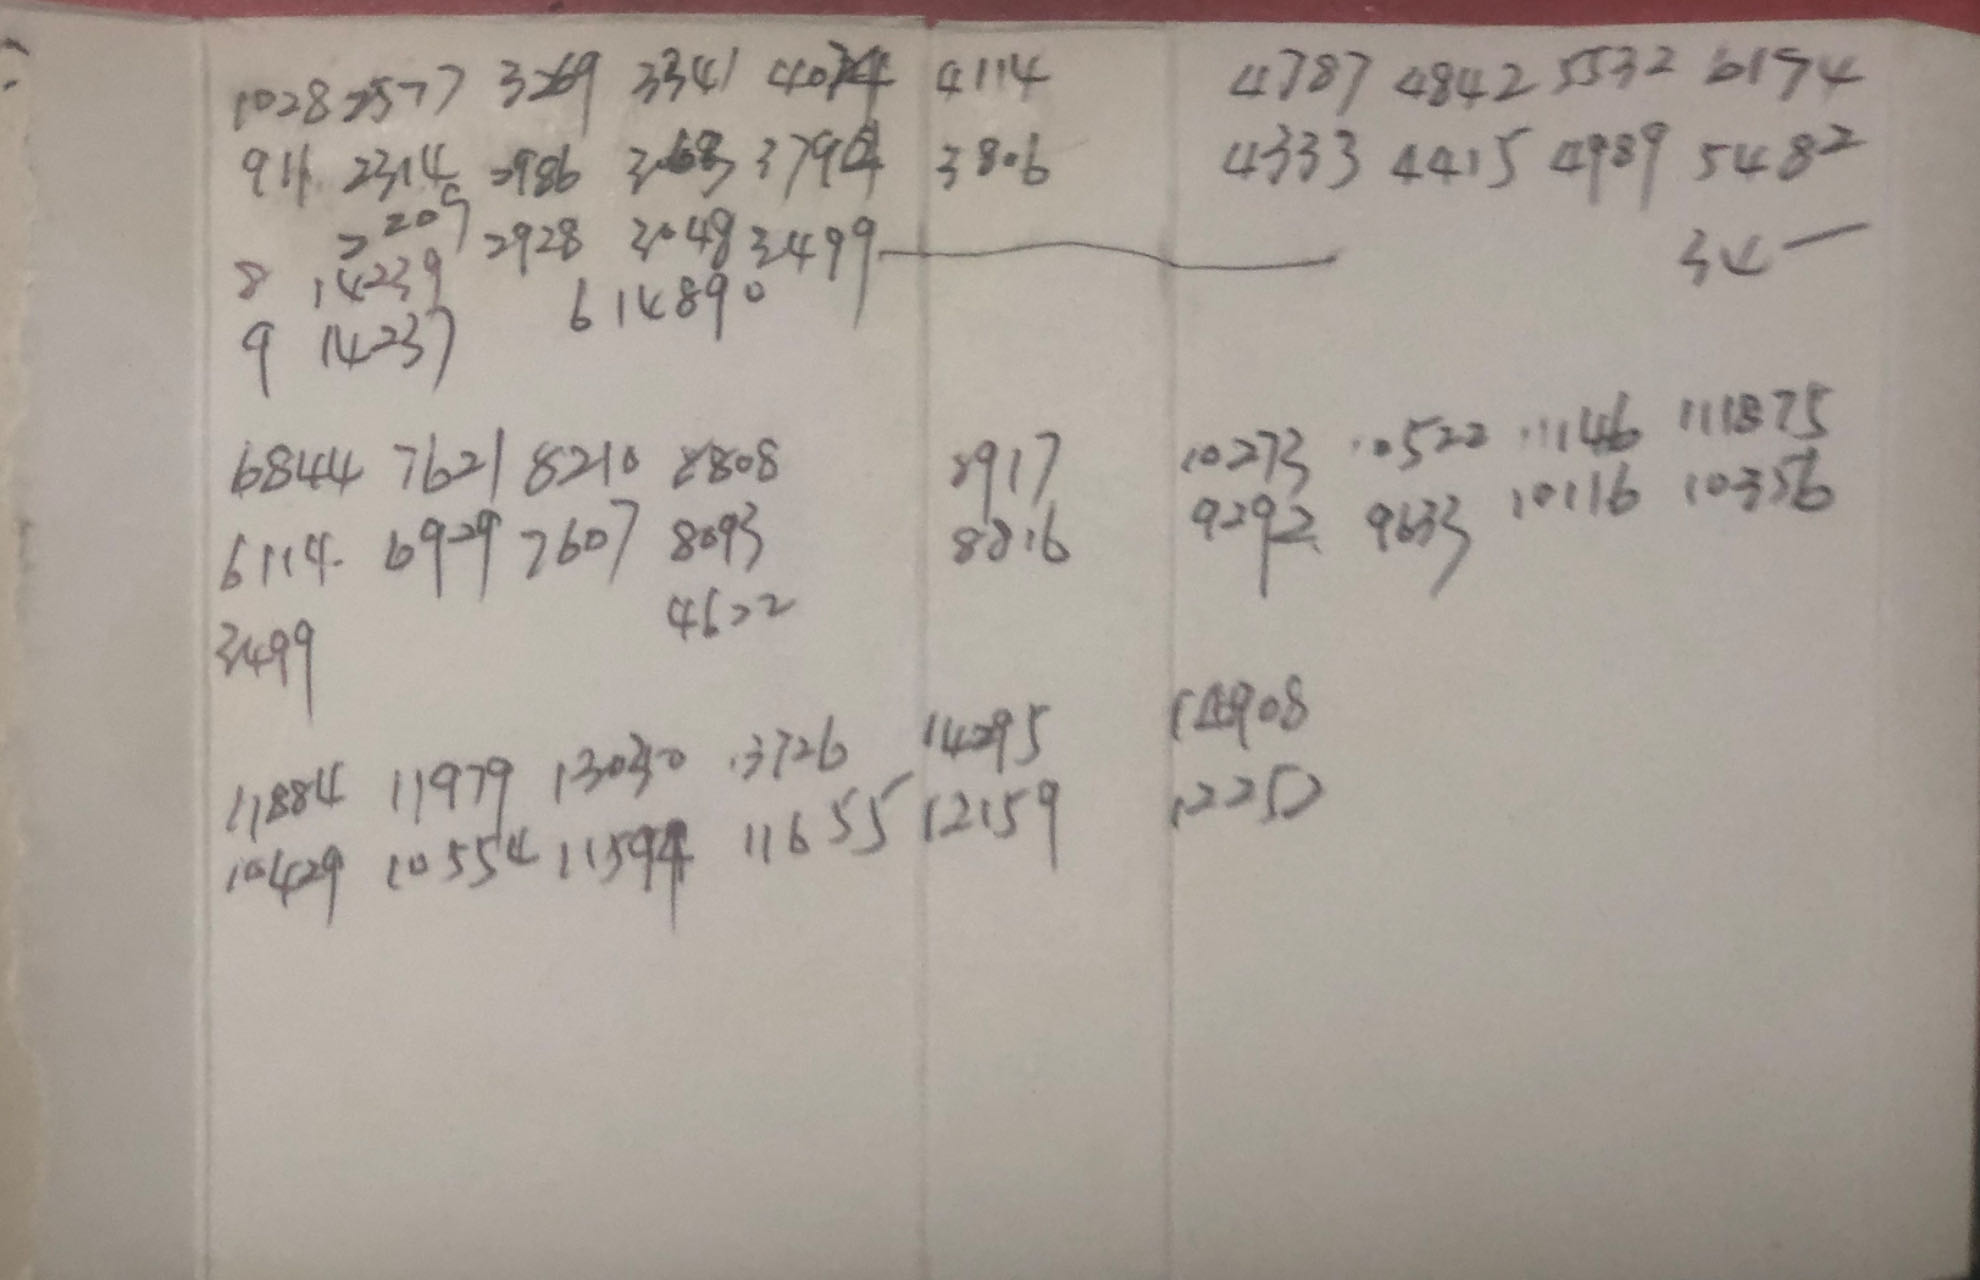 1028 2577 3269 3341 4114 4787 4842 5532 6154
911 2314 2986 3063 3806 4333 4415 4989 5482
2209 2928 3048 3499
8 14239 614890
9 14237
6844 7621 8210 8808 8917 10273 10522 11146 111875
6114 6929 7607 8093 8816 9292 9633 10116 10356
3499 4622
11884 11979 13030 13726 14295 14908
10429 10554 11594 11655 12159